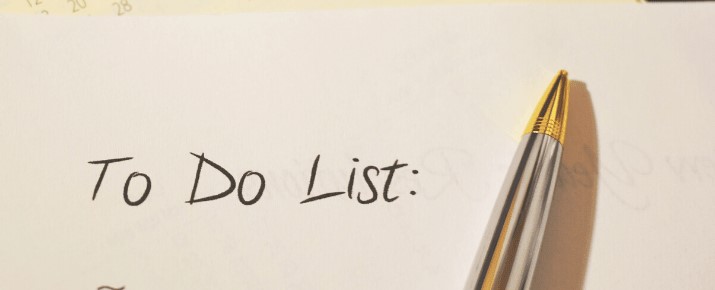 12 20 28
To Do List: